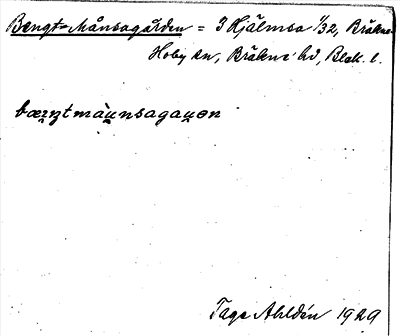 Bengt-Månsagården = I Hjälmsa 1/32, Bräkne-
Hoby sn, Bräkne hd, Blek. l.
bæŋtmàunsagauen
Tage Ahldén 1929